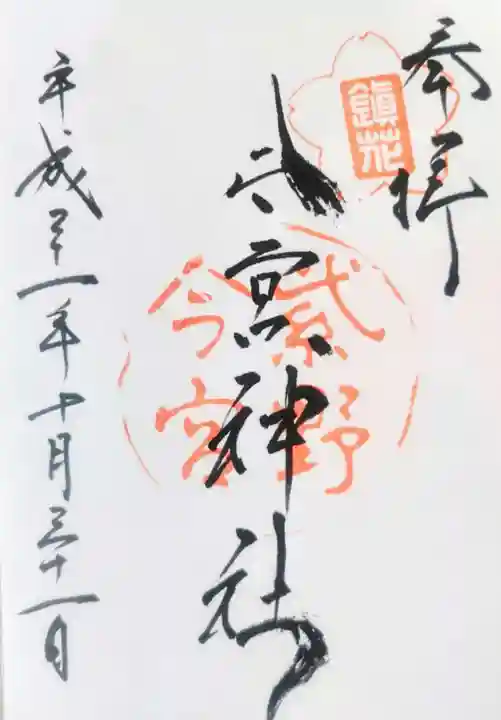 奉拝
鎭花
今宮神社
紫野
今宮
平成二十一年十月三十一日